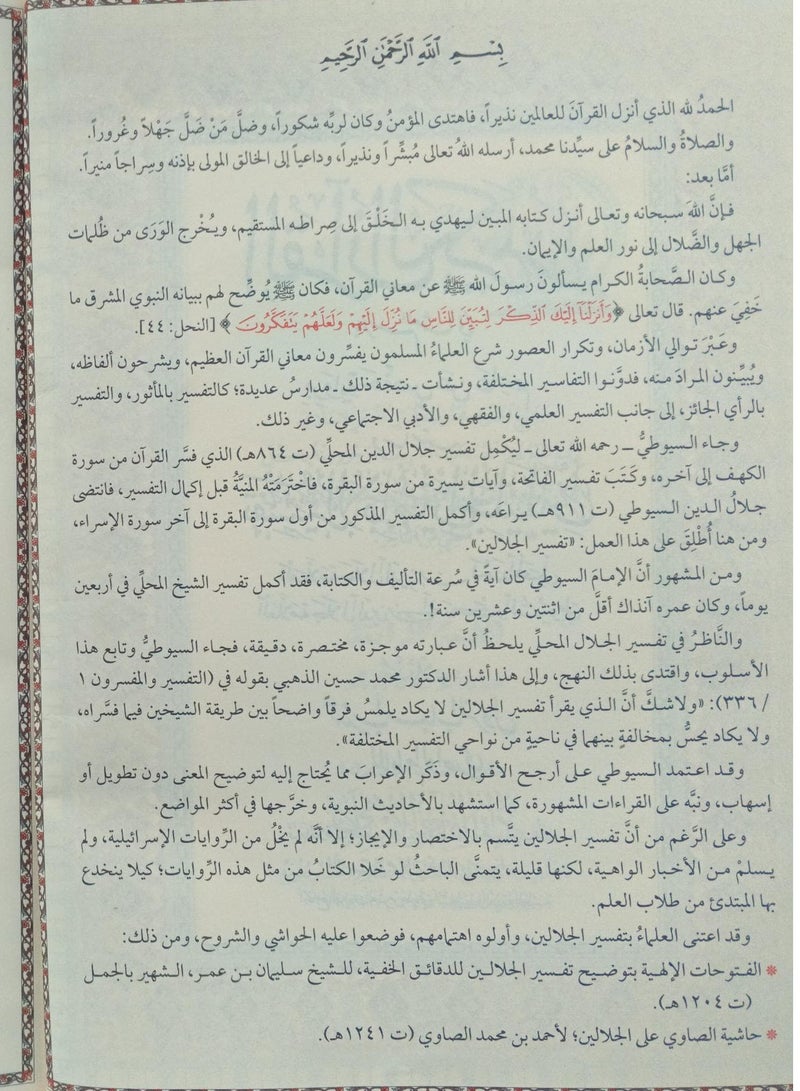 بِسْمِ ٱللَّهِ ٱلرَّحْمَٰنِ ٱلرَّحِيمِ
الحمدُ لله الذي أنزل القرآنَ للعالمين نذيراً، فاهتدى المؤمنُ وكان لربِّه شكوراً، وضلَّ مَنْ ضَلَّ جَهْلاً وغُروراً.
والصلاةُ والسلامُ على سيِّدنا محمد، أرسله اللهُ تعالى مُبشِّراً ونذيراً، وداعياً إلى الخالق المولى بإذنه وسِراجاً منيراً.
أمَّا بعد:
فإنَّ اللهَ سبحانه وتعالى أنزل كتابه المبين ليهدي به الخَلْقَ إلى صِراطه المستقيم، ويُخْرج الوَرَى من ظُلمات
الجهل والضَّلال إلى نور العلم والإيمان.
وكان الصَّحابةُ الكرام يسألونَ رسولَ الله ﷺ عن معاني القرآن، فكان ﷺ يُوضِّح لهم ببيانه النبوي المشرق ما
خَفِيَ عنهم. قال تعالى ﴿وَأَنزَلْنَآ إِلَيْكَ ٱلذِّكْرَ لِتُبَيِّنَ لِلنَّاسِ مَا نُزِّلَ إِلَيْهِمْ وَلَعَلَّهُمْ يَتَفَكَّرُونَ﴾ [النحل: ٤٤].
وعَبْرَ توالي الأزمان، وتكرار العصور شرع العلماءُ المسلمون يفسِّرون معاني القرآن العظيم، ويشرحون ألفاظه،
ويُبيِّنون المرادَ منه، فدوَّنوا التفاسير المختلفة، ونشأت ـ نتيجة ذلك ـ مدارسُ عديدة؛ كالتفسير بالمأثور، والتفسير
بالرأي الجائز، إلى جانب التفسير العلمي، والفقهي، والأدبي الاجتماعي، وغير ذلك.
وجاء السيوطيُّ ـ رحمه الله تعالى ـ ليُكْمِل تفسير جلال الدين المحلِّي (ت ٨٦٤هـ) الذي فسَّر القرآن من سورة
الكهف إلى آخره، وكَتَبَ تفسير الفاتحة، وآيات يسيرة من سورة البقرة، فاخْتَرَمَتْهُ المنيَّةُ قبل إكمال التفسير، فانتضى
جلالُ الدين السيوطي (ت ٩١١هـ) يراعَه، وأكمل التفسير المذكور من أول سورة البقرة إلى آخر سورة الإسراء،
ومن هنا أُطْلِقَ على هذا العمل: «تفسير الجلالين».
ومن المشهور أنَّ الإمامَ السيوطي كان آيةً في سُرعة التأليف والكتابة، فقد أكمل تفسير الشيخ المحلِّي في أربعين
يوماً، وكان عمره آنذاك أقلَّ من اثنتين وعشرين سنة!.
والنَّاظرُ في تفسير الجلال المحلِّي يلحظُ أنَّ عبارته موجزة، مختصرة، دقيقة، فجاء السيوطيُّ وتابع هذا
الأسلوب، واقتدى بذلك النهج، وإلى هذا أشار الدكتور محمد حسين الذهبي بقوله في (التفسير والمفسرون ١
/ ٣٣٦): «ولاشكَّ أنَّ الذي يقرأ تفسير الجلالين لا يكاد يلمسُ فرقاً واضحاً بين طريقة الشيخين فيما فسَّراه،
ولا يكاد يحسُّ بمخالفةٍ بينهما في ناحيةٍ من نواحي التفسير المختلفة».
وقد اعتمد السيوطي على أرجح الأقوال، وذَكَر الإعرابَ مما يُحتاج إليه لتوضيح المعنى دون تطويل أو
إسهاب، ونبَّه على القراءات المشهورة، كما استشهد بالأحاديث النبوية، وخرَّجها في أكثر المواضع.
وعلى الرَّغم من أنَّ تفسير الجلالين يتَّسم بالاختصار والإيجاز؛ إلا أنَّه لم يخْلُ من الرِّوايات الإسرائيلية، ولم
يسلمْ من الأخبار الواهية، لكنها قليلة، يتمنَّى الباحثُ لو خَلا الكتابُ من مثل هذه الرِّوايات؛ كيلا ينخدع
بها المبتدئ من طلاب العلم.
وقد اعتنى العلماءُ بتفسير الجلالين، وأولوه اهتمامهم، فوضعوا عليه الحواشي والشروح، ومن ذلك:
* الفتوحات الإلهية بتوضيح تفسير الجلالين للدقائق الخفية، للشيخ سليمان بن عمر، الشهير بالجمل
(ت ١٢٠٤هـ).
* حاشية الصاوي على الجلالين؛ لأحمد بن محمد الصاوي (ت ١٢٤١هـ).